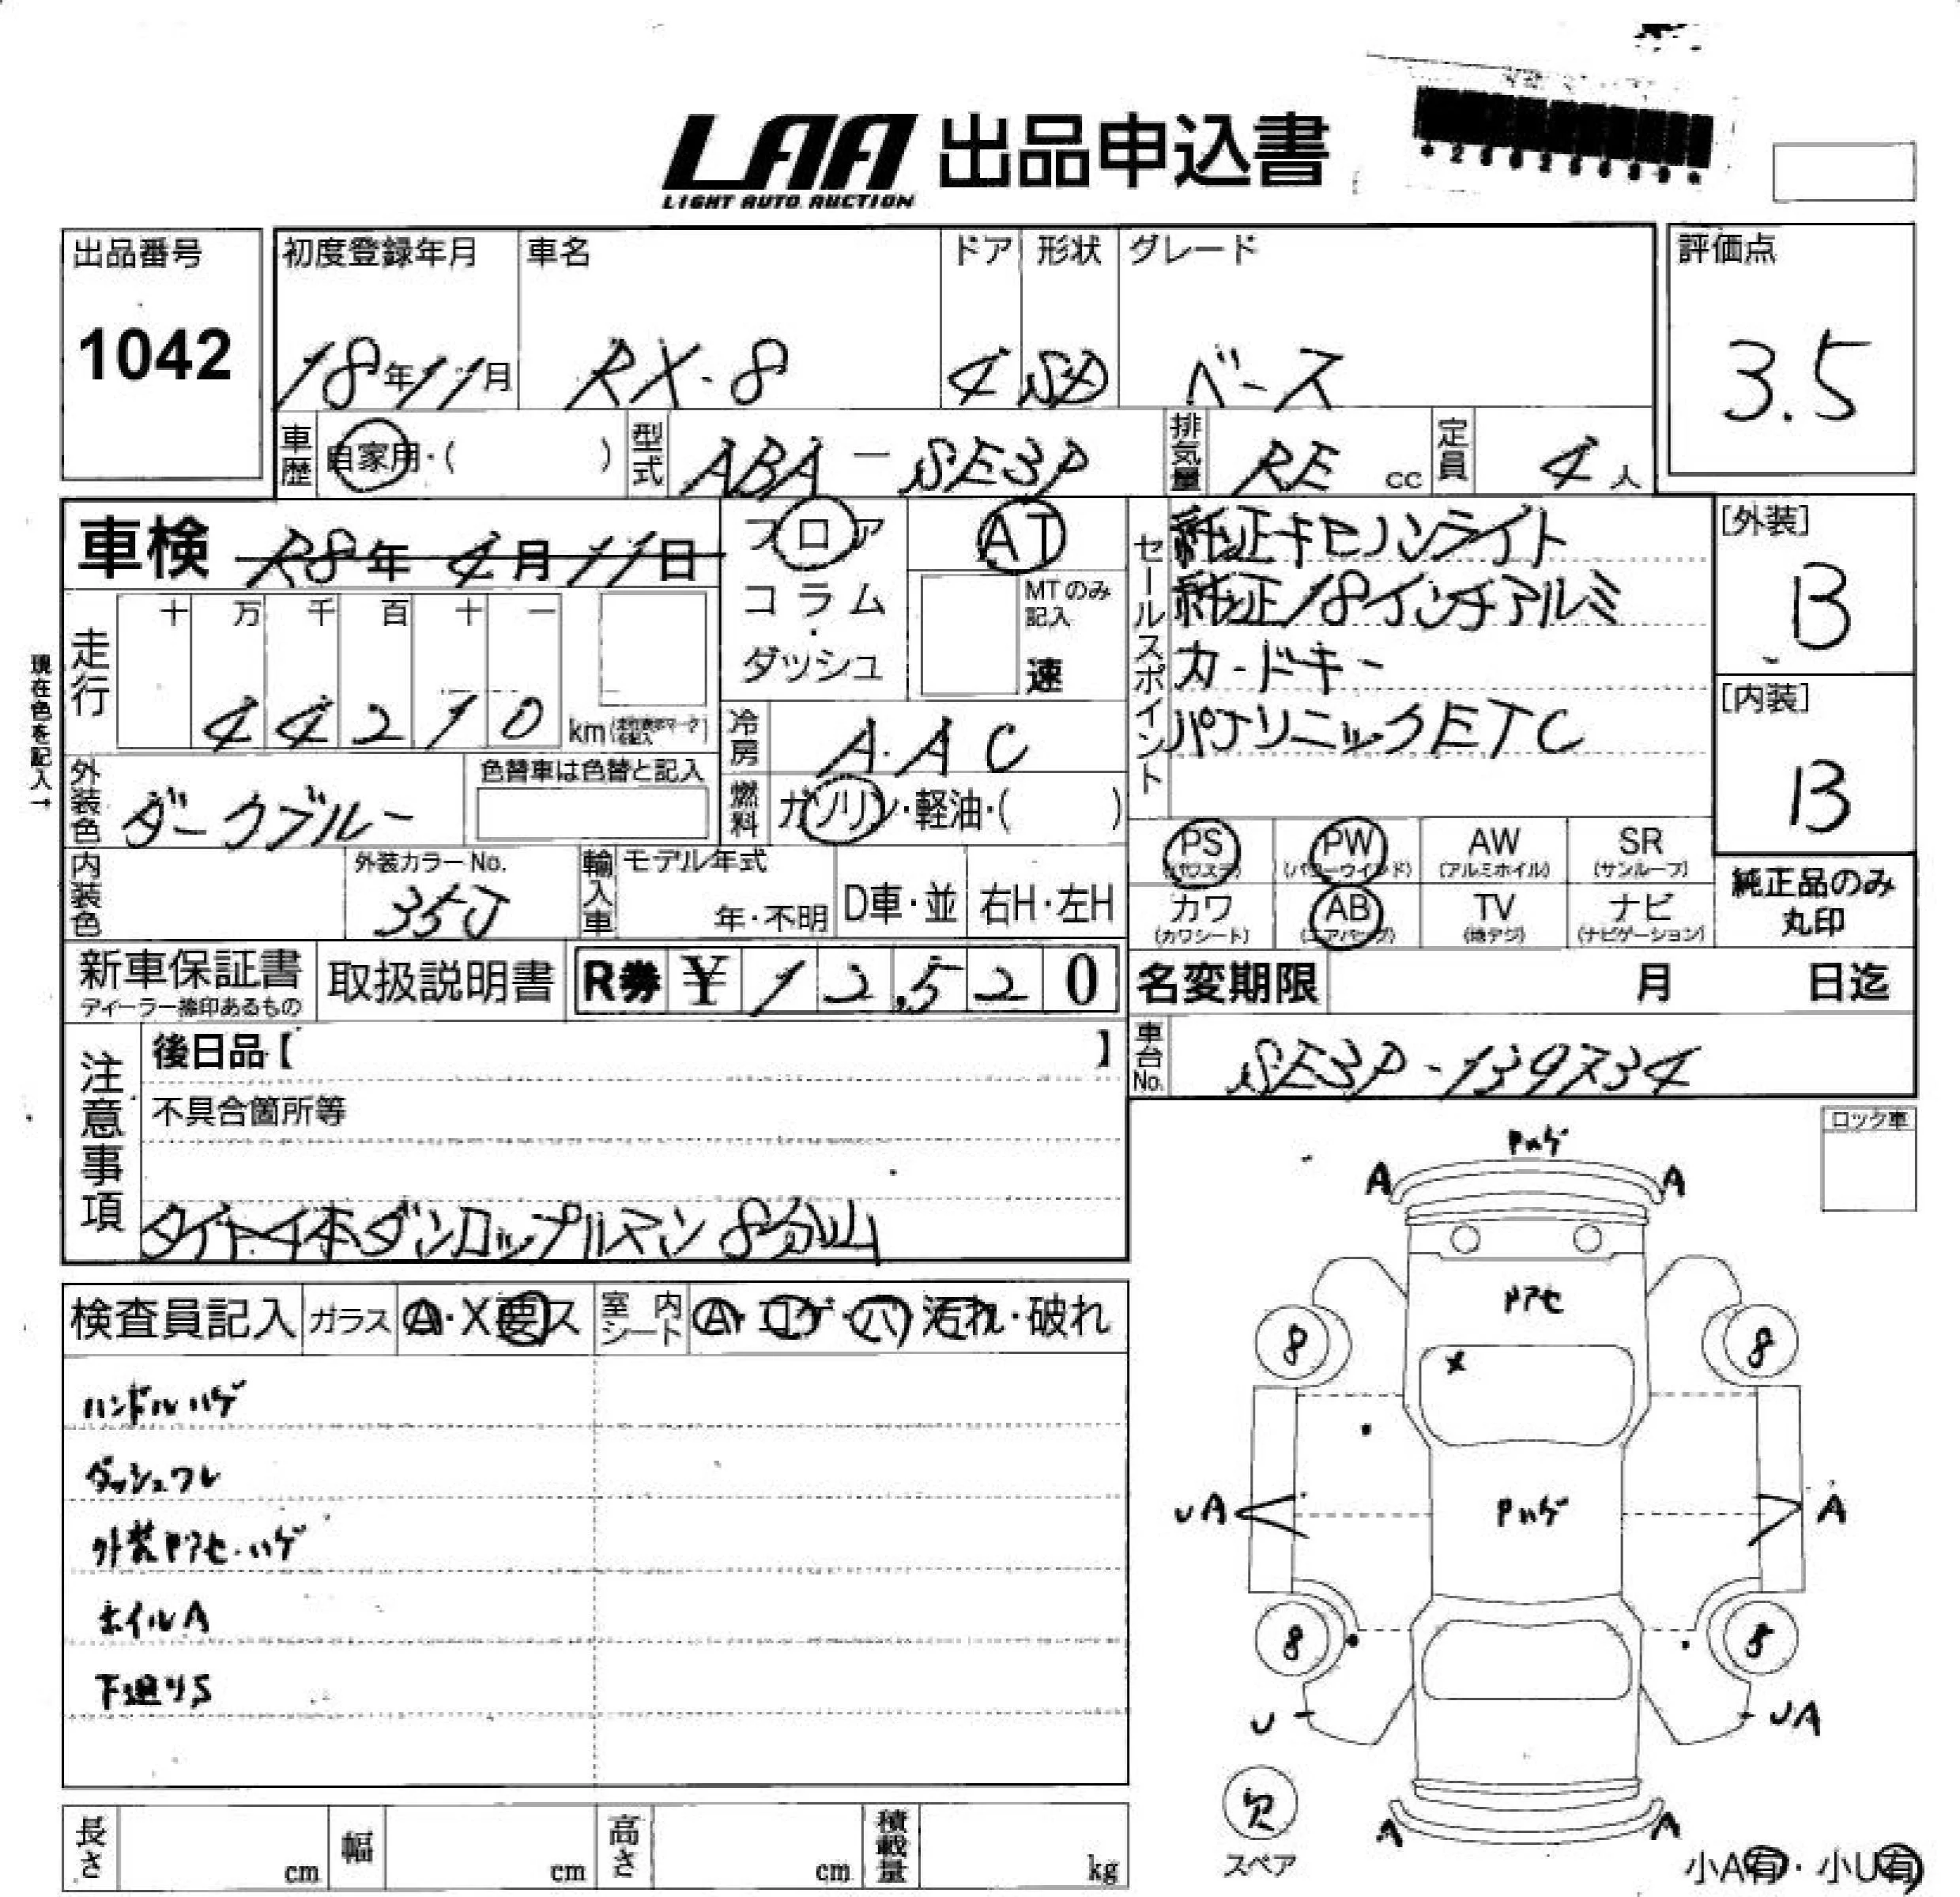 LAA 出品申込書
LIGHT AUTO AUCTION
出品番号
1042
初度登録年月
18年11月
車名
RX-8
ドア
4
形状
SD
グレード
ベース
評価点
3.5
車歴 自家用・( )
型式 ABA-SE3P
排気量 RE cc
定員 4人
車検 R8年4月11日
フロア
コラム・
ダッシュ
AT
MTのみ
記入
速
セールスポイント
純正キセノンライト
純正18インチアルミ
カードキー
パナソニックETC
[外装]
B
[内装]
B
純正品のみ
丸印
現在色を記入→
走行
十 万 千 百 十 一
44210 km
冷房 A.AC
燃料 ガソリン・軽油・( )
外装色 ダークブルー
色替車は色替と記入
内装色
外装カラーNo.
35J
輸入車
モデル年式
年・不明
D車・並
右H・左H
PS
(パワステ)
PW
(パワーウインド)
AW
(アルミホイル)
SR
(サンルーフ)
カワ
(カワシート)
AB
(エアバッグ)
TV
(地デジ)
ナビ
(ナビゲーション)
新車保証書
ディーラー捺印あるもの
取扱説明書
R券 ¥12,520
名変期限 月 日迄
車台No. SE3P-139734
注意事項
後日品【 】
不具合箇所等
タイヤ4本ダンロップルマン8分山
検査員記入
ガラス A・X要ス
室内シート A・コゲ・穴・汚れ・破れ
ハンドルハゲ
ダッシュワレ
外装Pアセ・ハゲ
ホイルA
下廻りS
ロック車
Pハゲ
A A
Pアセ
8 8
X
UA
Pハゲ
A
8 8
U
UA
欠
スペア
A A
小A有・小U有
長さ cm
幅 cm
高さ cm
積載量 kg